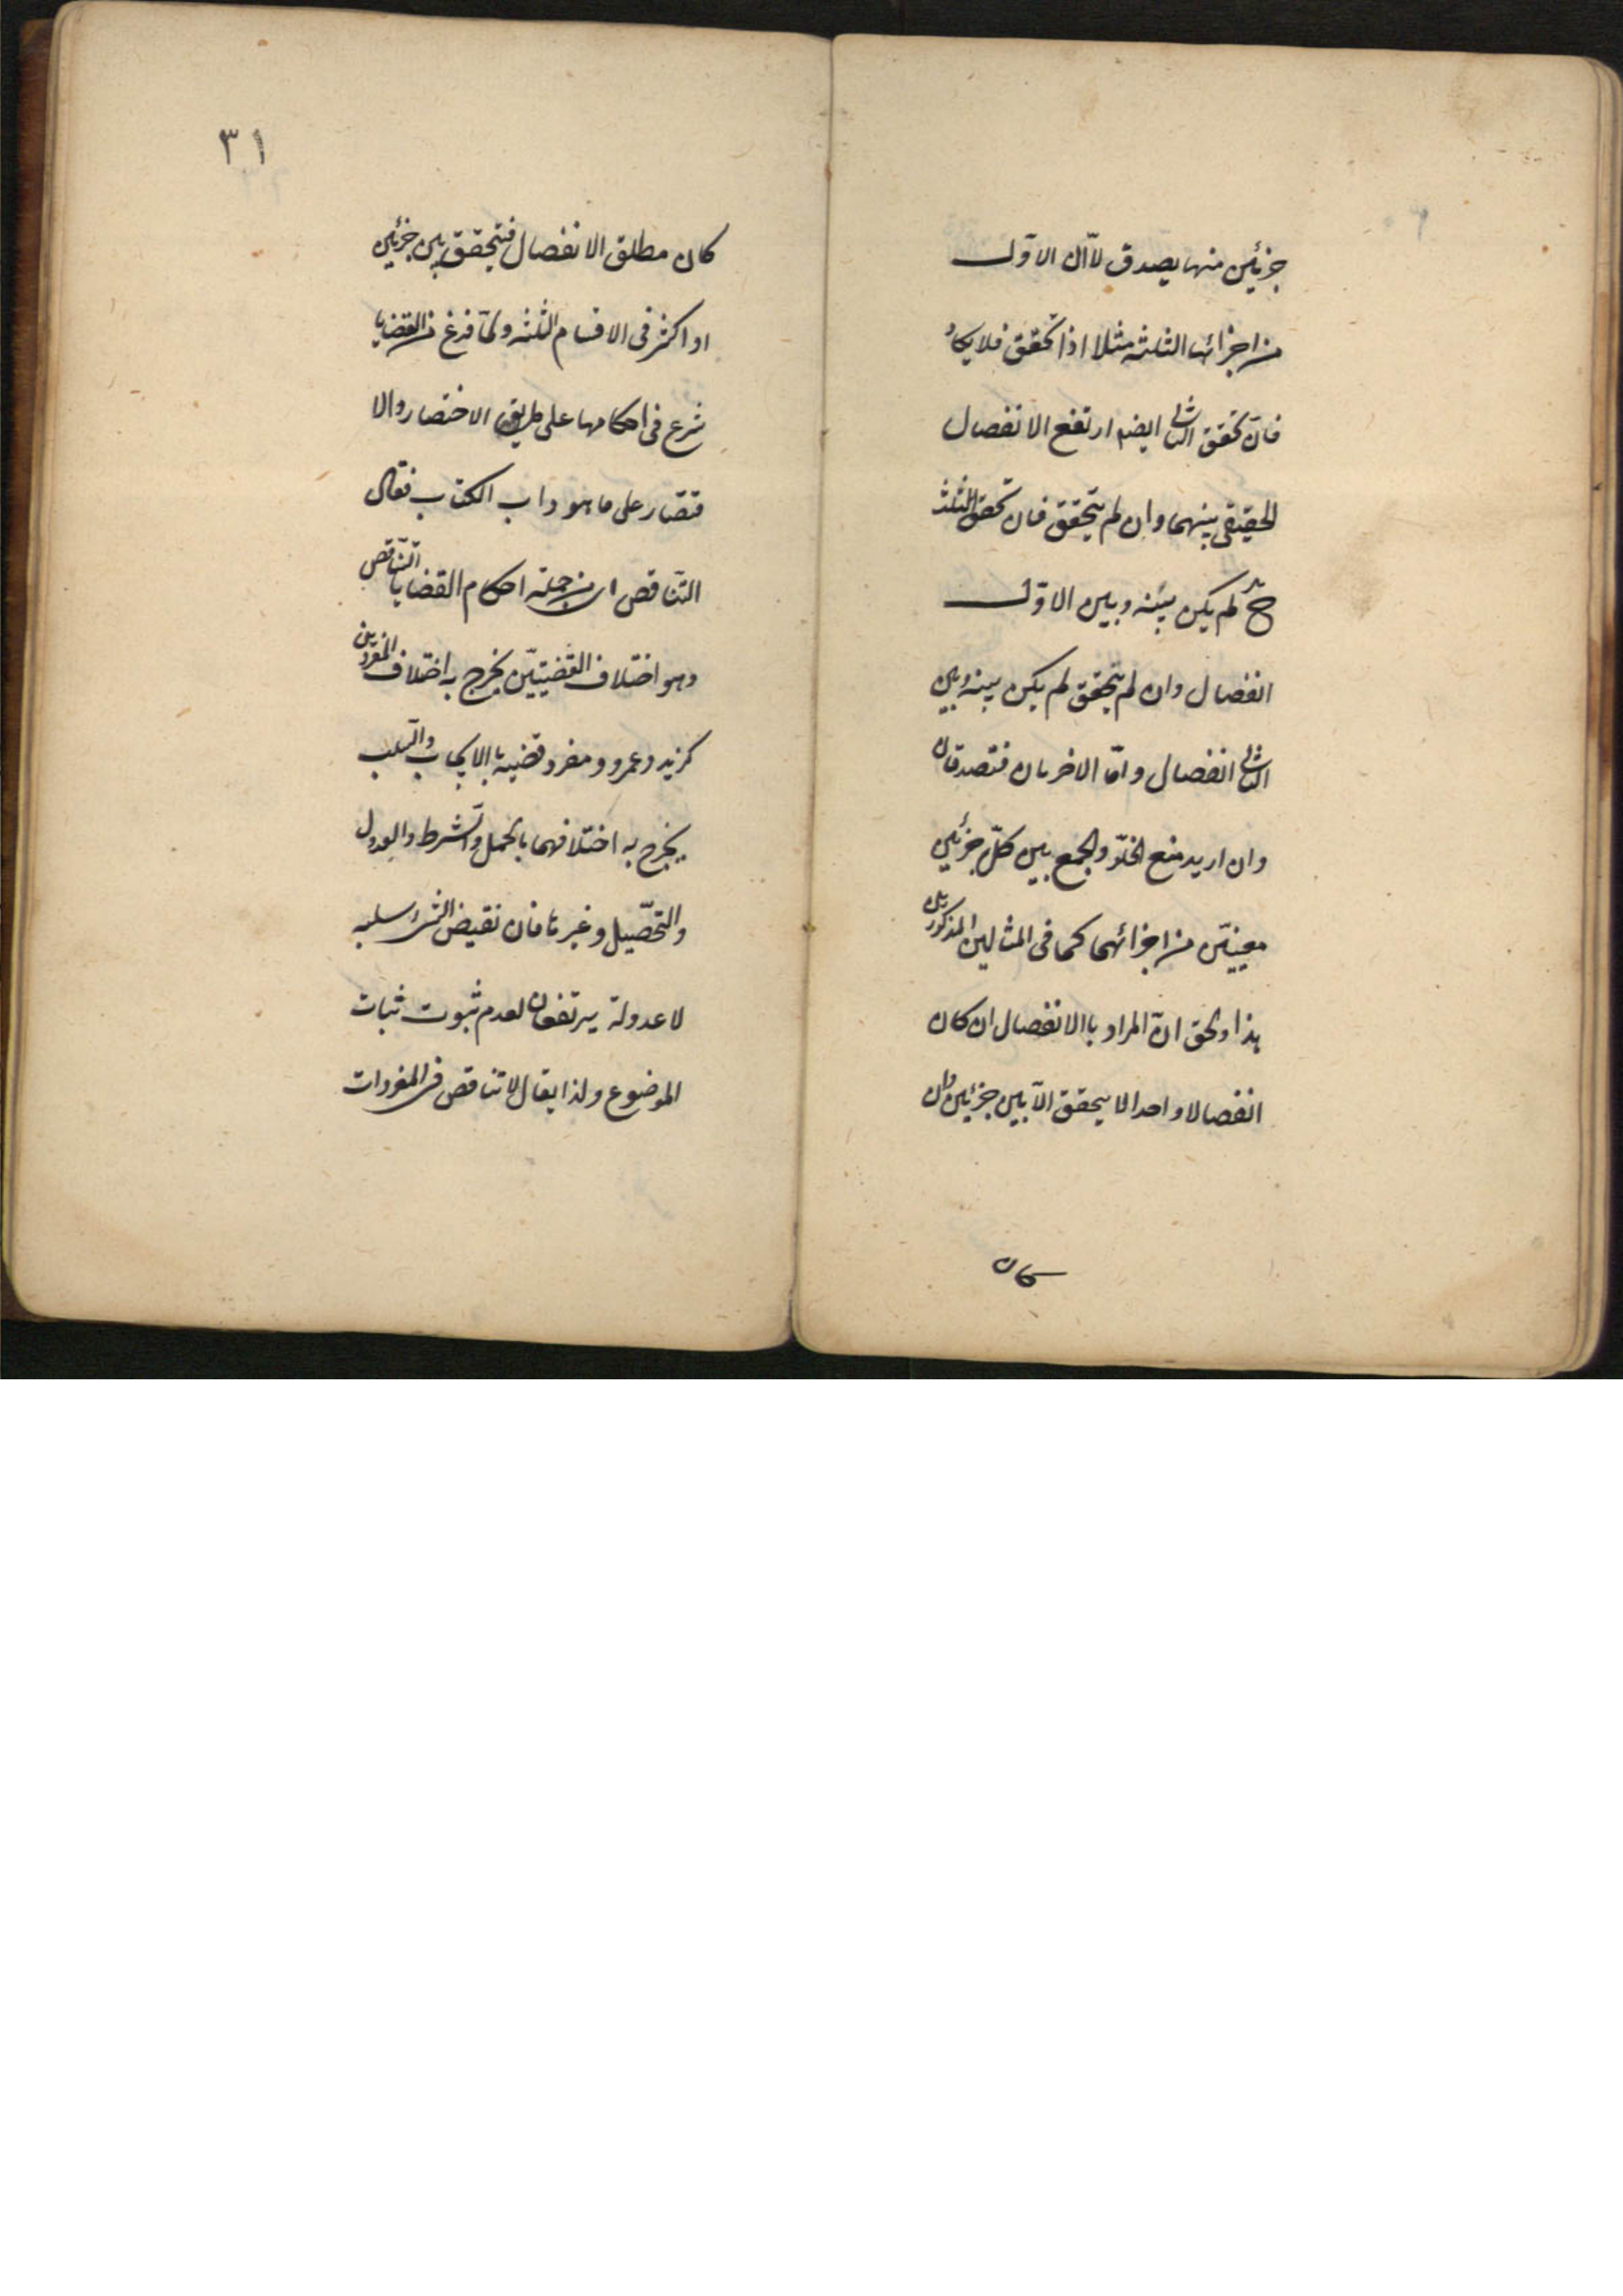 جزئين منها يصدق لأن الاول
من اجزائها الثلثة مثلا اذا تحقق فلا يكا
فان تحقق الثانى ايضا ارتفع الانفصال
الحقيقى بينهما وان لم يتحقق فان تحقق الثلث
ح لم يكن بينه وبين الاول
انفصال وان لم يتحقق لم يكن بينه وبين
الثانى انفصال وامّا الاخريان فتصدقان
وان اريد منع الخلوّ والجمع بين كلّ جزئين
معينين من اجزائهما كما فى المثالين المذكورين
هذا والحق انّ المراد باالانفصال ان كان
انفصالا واحدا لا يتحقق الّا بين جزئين وان
كان
٣١
كان مطلق الانفصال فتحقق بين جزئين
او اكثر فى الاقسام الثلثه ولمّا فرغ من القضايا
شرع فى احكامها على طريق الاختصار والا
قتصار على ما هو داب الكتاب فقال
التناقص اى من جملة احكام القضايا التناقص
وهو اختلاف القضيتين يخرج به اختلاف المفردين
كزيد وعمرو ومفرد وقضية بالايجاب والسّلب
يخرج به اختلافهما بالحمل والشرط والعدول
والتحصّيل وغيرها فان نقيض الشئ سلبه
لا عدوله يرتفعان لعدم ثبوت ثبات
الموضوع ولذا يقال لا تناقص فى المفردات